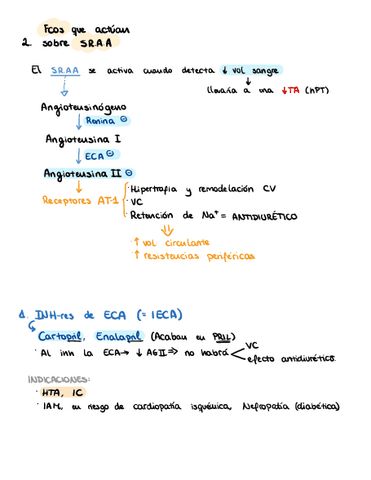 Fcos que actúan
2. sobre S.R.A.A
El SRAA se activa cuando detecta ↓ vol sangre
llevaría a una ↓TA (hPT)
Angiotensinógeno
↓ Renina ⊖
Angiotensina I
↓ ECA ⊖
Angiotensina II ⊖
Receptores AT-1
· Hipertrofia y remodelación CV
· VC
· Retención de Na⁺ = ANTIDIURÉTICO
↑ vol circulante
↑ resistencias periféricas
1. INH-res de ECA (= IECA)
Captopril, Enalapril (Acaban en PRIL)
· Al inh la ECA → ↓ AGII => no habrá
VC
efecto antidiurético.
INDICACIONES:
· HTA, IC
· IAM, en riesgo de cardiopatía isquémica, Nefropatía (diabética)